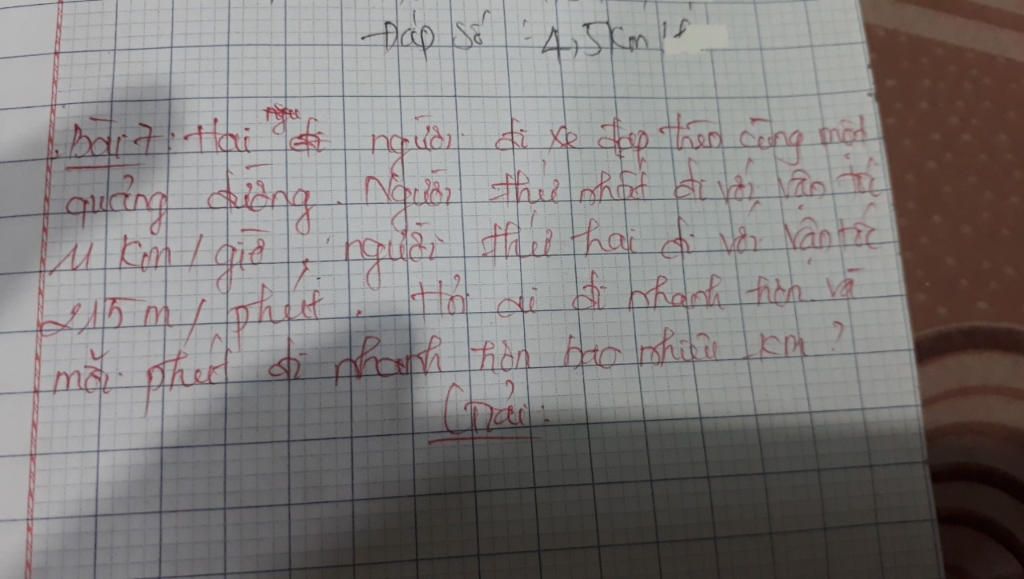 Đáp số : 4,5km/
Bài 7: Hai người đi xe đạp trên cùng một
quảng đường. Người thứ nhất đi với vận tốc
11 km / giờ, người thứ hai đi với vận tốc
215 m / phút. Hỏi ai đi nhanh hơn và
mỗi phút đi nhanh hơn bao nhiêu km?
Giải: